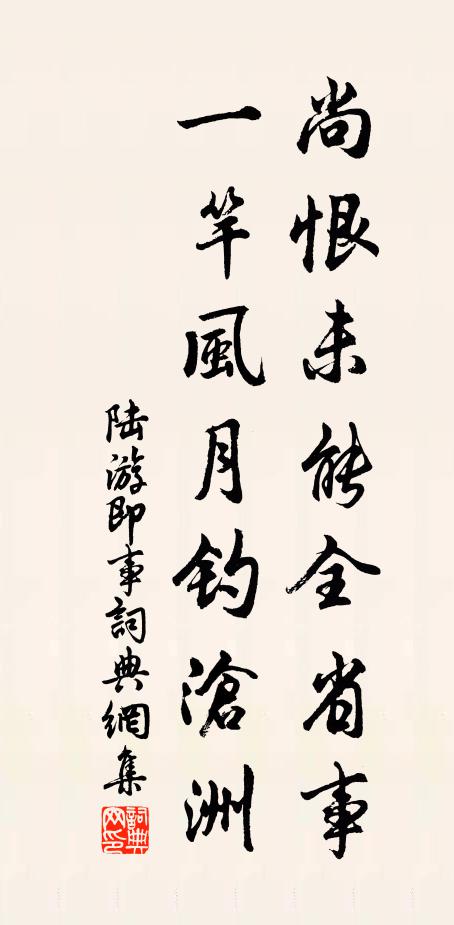 尚恨未能全省事
一竿風月釣滄洲
陸游即事詞典網集
詞典
网印